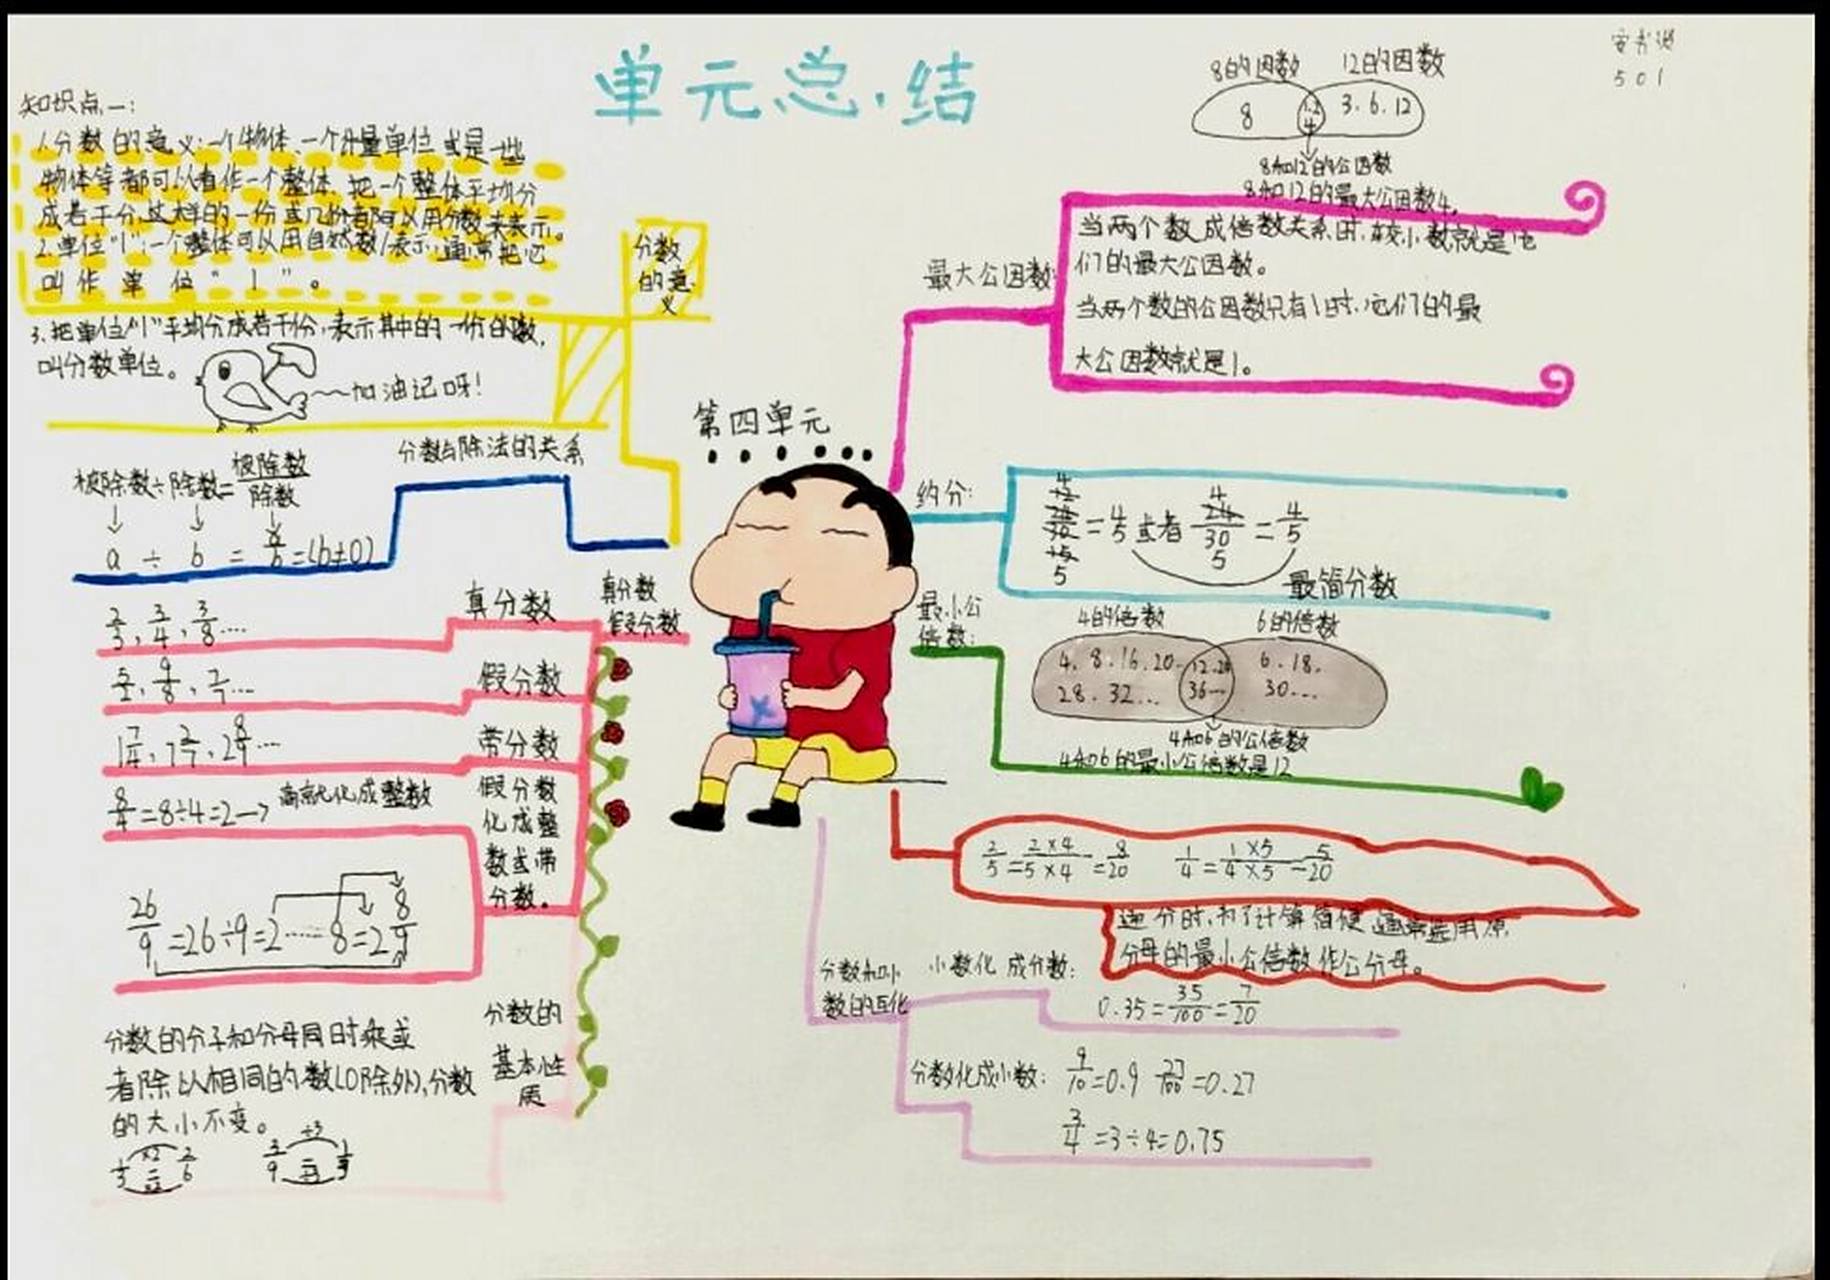 单元总结
501
知识点一:
1.分数的意义:一个物体、一个计量单位或是一些
物体等都可以看作一个整体,把一个整体平均分
成若干份,这样的一份或几份都可以用分数来表示。
2.单位“1”:一个整体可以用自然数1表示,通常把它
叫作单位“1”。
分数
的意
义
3.把单位“1”平均分成若干份,表示其中的一份的数,
叫分数单位。
加油记呀!
分数与除法的关系
被除数÷除数=被除数/除数
a÷b=a/b=(b≠0)
真分数
假分数
真分数
2/3,3/4,3/8…
假分数
带分数
8/4=8÷4=2→商就化成整数
假分数
化成整
数或带
分数。
26/9=26÷9=2……8=2 8/9
分数的
基本性
质
分数的分子和分母同时乘或
者除以相同的数(0除外),分数
的大小不变。
1/3 ×2 = ×2 2/6
3/9 ÷3 = ÷3 1/3
第四单元
8的因数 12的因数
8 1.2 4 3.6.12
8和12的公因数
8和12的最大公因数4。
最大公因数:
当两个数成倍数关系时,较小数就是它
们的最大公因数。
当两个数的公因数只有1时,它们的最
大公因数就是1。
约分:
=4/5或者 4 24/30 5 =4/5
最简分数
最小公
倍数:
4的倍数 6的倍数
4.8.16.20. 6.18.
28.32… 36… 30…
4和6的公倍数
4和6的最小公倍数是12
2/5=2×4/5×4=8/20 1/4=1×5/4×5=5/20
通分时,为了计算简便,通常选用原
分母的最小公倍数作公分母。
分数和小
数的互化
小数化成分数:
0.35=35/100=7/20
分数化成小数: 9/10=0.9 27/100=0.27
3/4=3÷4=0.75